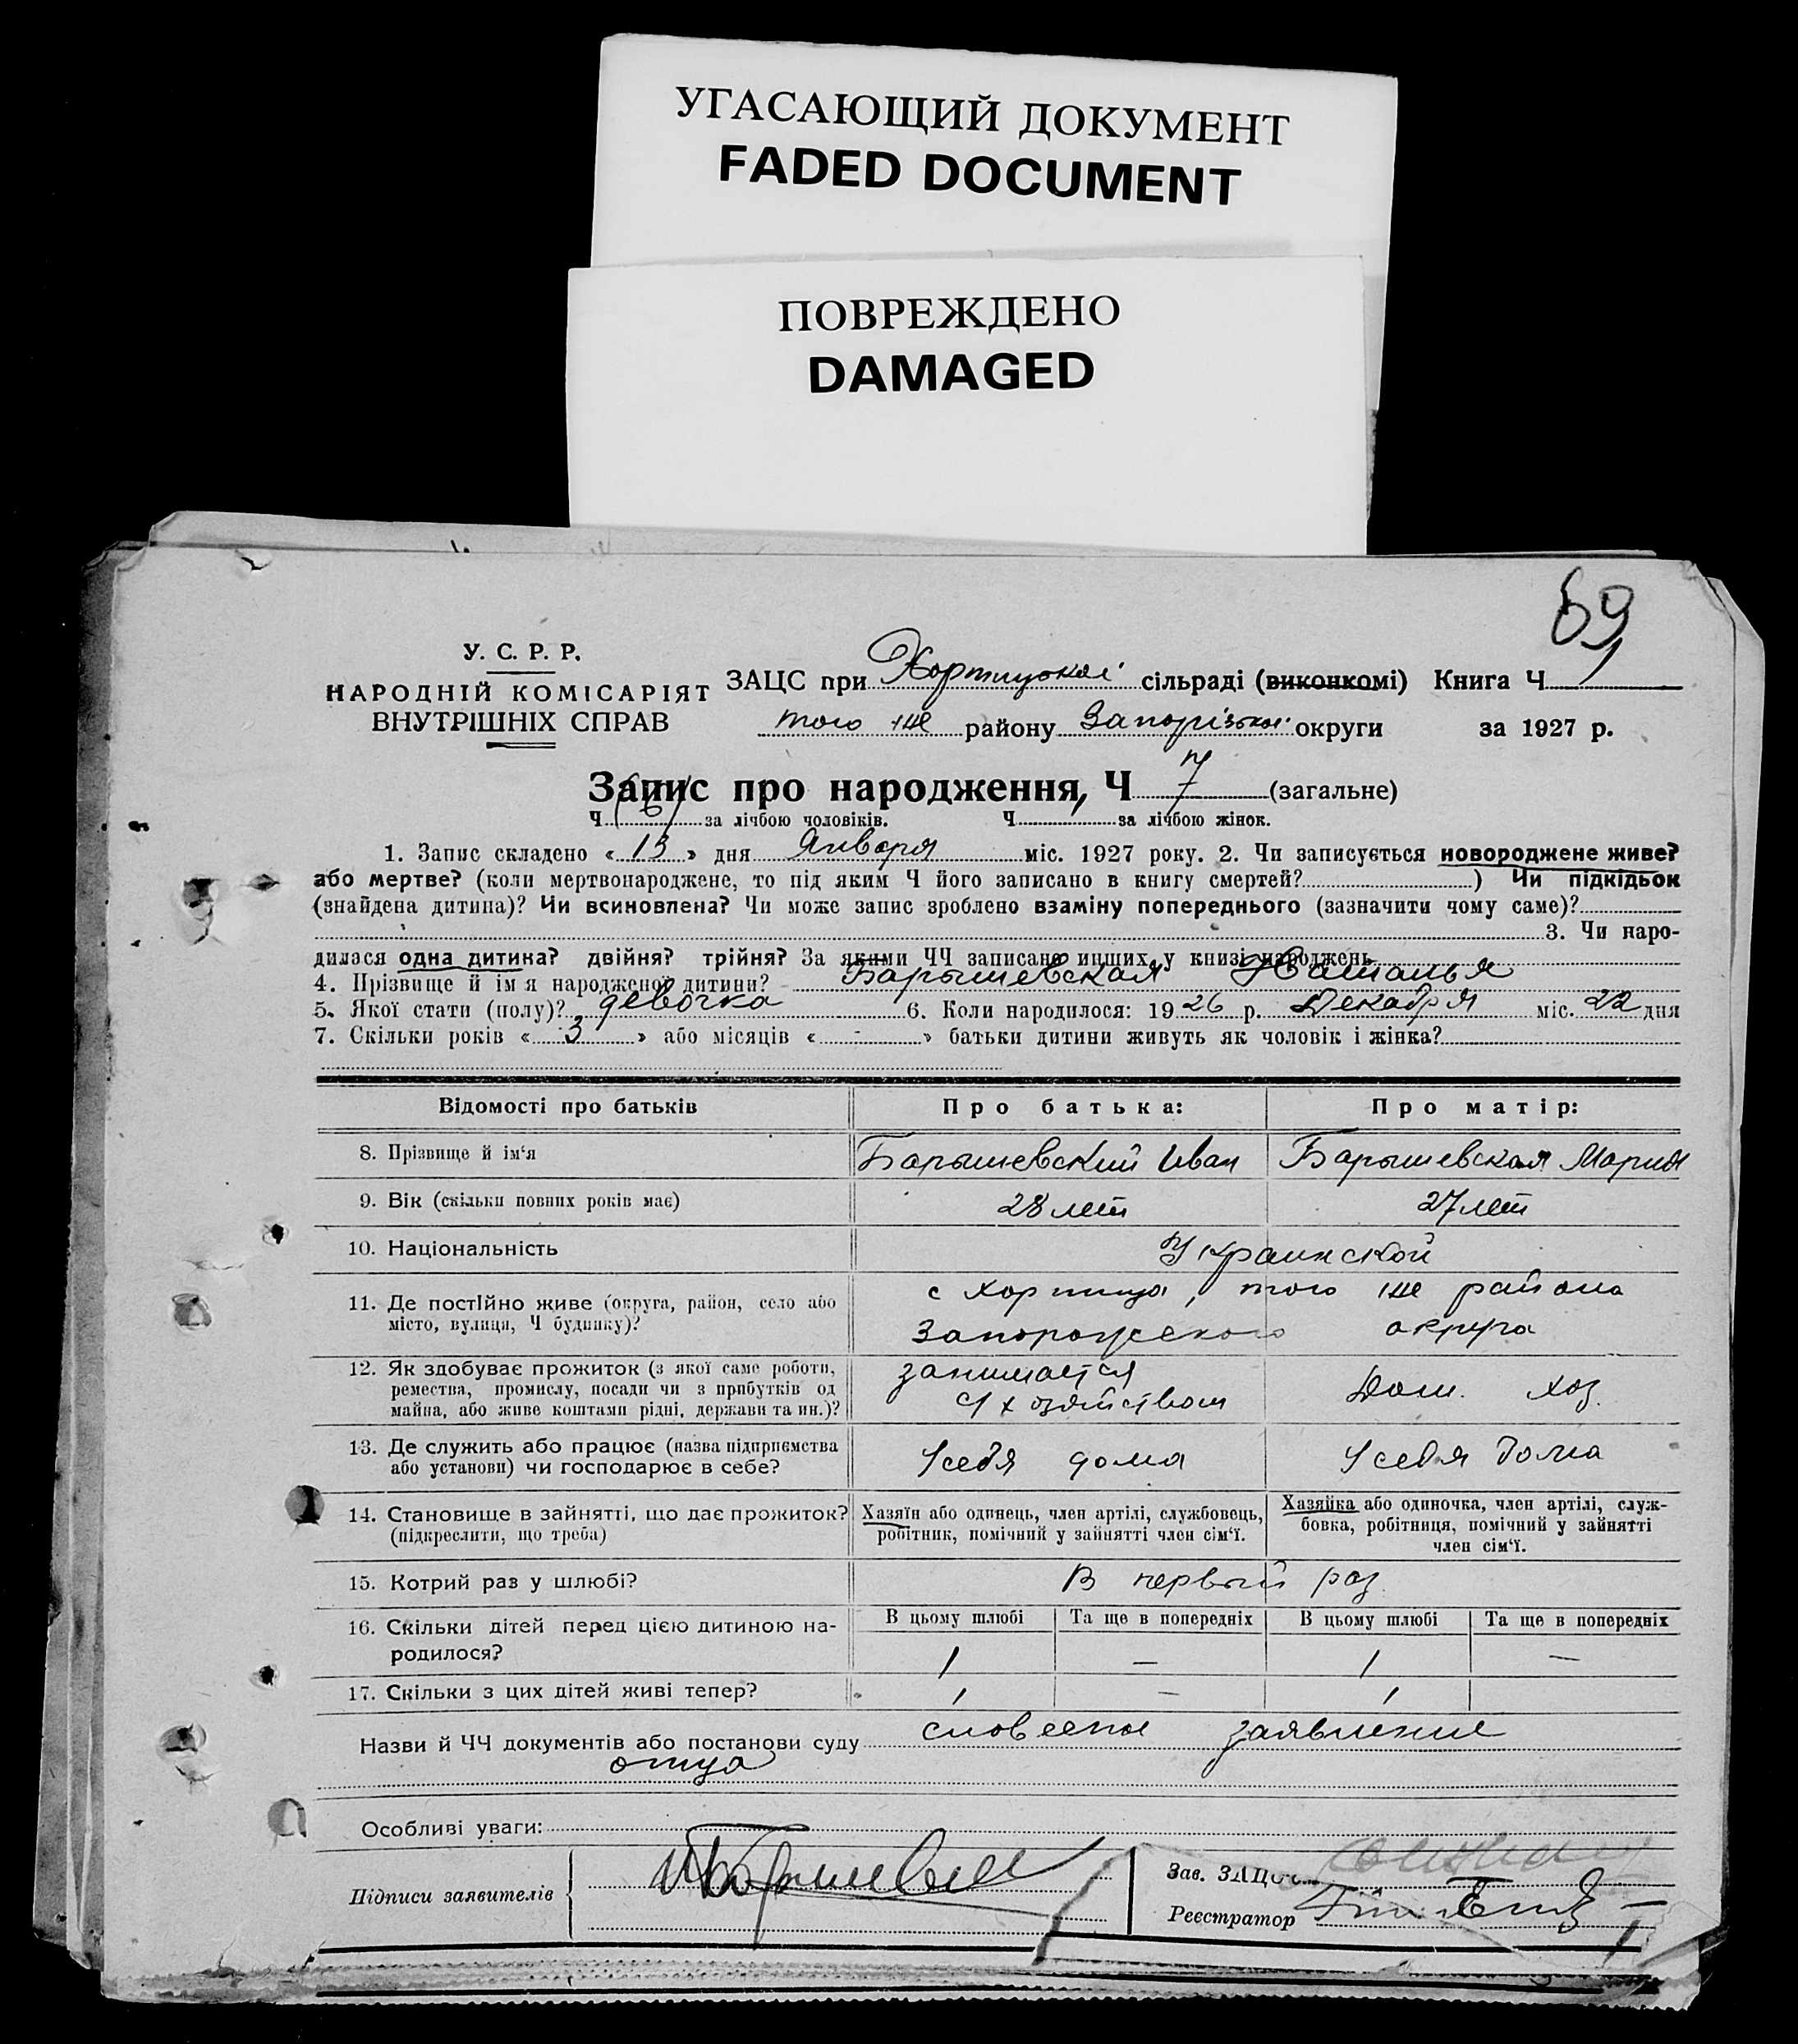 УГАСАЮЩИЙ ДОКУМЕНТ
FADED DOCUMENT
ПОВРЕЖДЕНО
DAMAGED
69
У. С. Р. Р.
НАРОДНІЙ КОМІСАРІЯТ
ВНУТРІШНІХ СПРАВ
ЗАЦС при Хортицькой сільраді (виконкомі) Книга Ч 1
того же району Запорізькой округи за 1927 р.
Запис про народження, Ч 7 (загальне)
Ч (6) за лічбою чоловіків. Ч 1 за лічбою жінок.
1. Запис складено « 13 » дня Января міс. 1927 року. 2. Чи записується новороджене живе?
або мертве? (коли мертвонароджене, то під яким Ч його записано в книгу смертей? ) Чи підкідьок
(знайдена дитина)? Чи всиновлена? Чи може запис зроблено взаміну попереднього (зазначити чому саме)?
3. Чи наро-
дилася одна дитина? двійня? трійня? За якими ЧЧ записано инших у книзі народжень
4. Прізвище й ім'я народженої дитини? Барышевская Наталья
5. Якої стати (полу)? девочка 6. Коли народилося: 19 26 р. Декабря міс. 22 дня
7. Скільки років « 3 » або місяців « - » батьки дитини живуть як чоловік і жінка?
Відомості про батьків Про батька: Про матір:
8. Прізвище й ім'я Барышевский Иван Барышевская Мария
9. Вік (скільки повних років має) 28 лет 27 лет
10. Національність Украинской
11. Де постійно живе (округа, район, село або
місто, вулиця, Ч будинку)?
с Хортица, того же района
Запорожского округа
12. Як здобуває прожиток (з якої саме роботи,
ремества, промислу, посади чи з прибутків од
майна, або живе коштами рідні, держави та ин.)?
занимается
С/хозяйством
Дом. хоз.
13. Де служить або працює (назва підприємства
або установи) чи господарює в себе?
У себя дома У себя дома
14. Становище в зайнятті, що дає прожиток?
(підкреслити, що треба)
Хазяїн або одинець, член артілі, службовець,
робітник, помічний у зайнятті член сім'ї.
Хазяйка або одиночка, член артілі, служ-
бовка, робітниця, помічний у зайнятті
член сім'ї.
15. Котрий раз у шлюбі? В первый раз
16. Скільки дітей перед цією дитиною на-
родилося?
В цьому шлюбі Та ще в попередніх В цьому шлюбі Та ще в попередніх
1 — 1 —
17. Скільки з цих дітей живі тепер? 1 — 1
Назви й ЧЧ документів або постанови суду словесное заявление
отца
Особливі уваги:
Підписи заявителів
Зав. ЗАЦС
Реєстратор